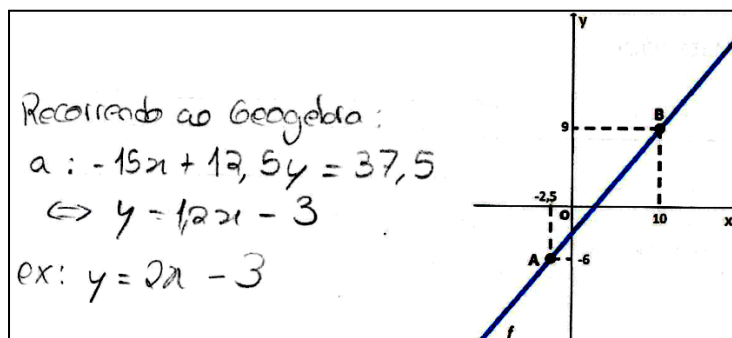 Recorrendo ao Geogebra:
a : -15x + 12,5y = 37,5
⇔ y = 1,2x - 3
ex: y = 2x - 3
y
B
9
-2,5
O
10
x
A
-6
f